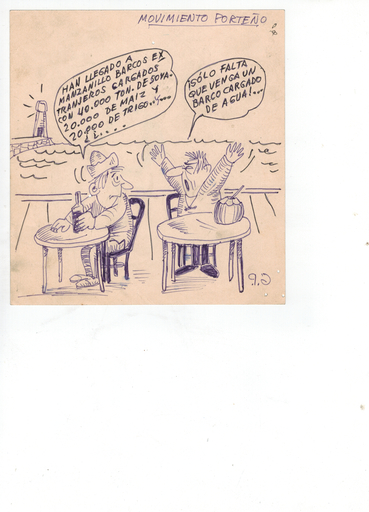 MOVIMIENTO PORTEÑO
HAN LLEGADO A
MANZANILLO BARCOS EX
TRANJEROS CARGADOS
CON 40.000 TON. DE SOYA.
20.000 DE MAIZ Y
20.000 DE TRIGO..
¡SÓLO FALTA
QUE VENGA UN
BARCO CARGADO
DE AGUA!...
G.P.